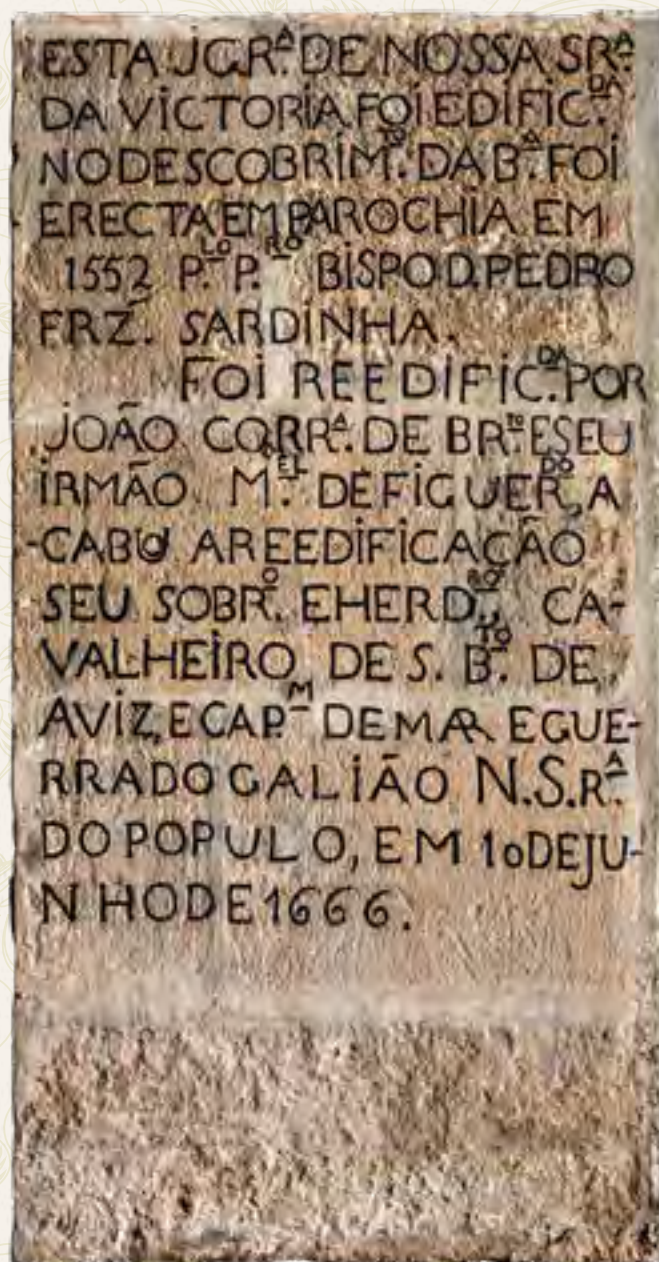 ESTA JGR.ᴬ DE NOSSA SR.ᴬ
DA VICTORIA FOI EDIFIC.ᴰᴬ
NO DESCOBRIM.ᵀᴼ DA B.ᴬ FOI
ERECTA EM PAROCHIA EM
1552 P.ᴸᴼ P.ᴿᴼ BISPO D. PEDRO
FRZ. SARDINHA.
FOI REEDIFIC.ᴰᴬ POR
JOÃO CORR.ᴬ DE BR.ᵀᴼ E SEU
IRMÃO M.ᴱᴸ DE FIGUER.ᴰᴼ, A
-CABU A REEDIFICAÇÃO
SEU SOBR.ᴼ E HERD.ᴿᴼ, CA-
VALHEIRO DE S. B.ᵀᴼ DE
AVIZ, E CAP.ᴹ DE MAR E GUE-
RRA DO GALIÃO N. S.R.ᴬ
DO POPULO, EM 10 DE JU-
NHO DE 1666.